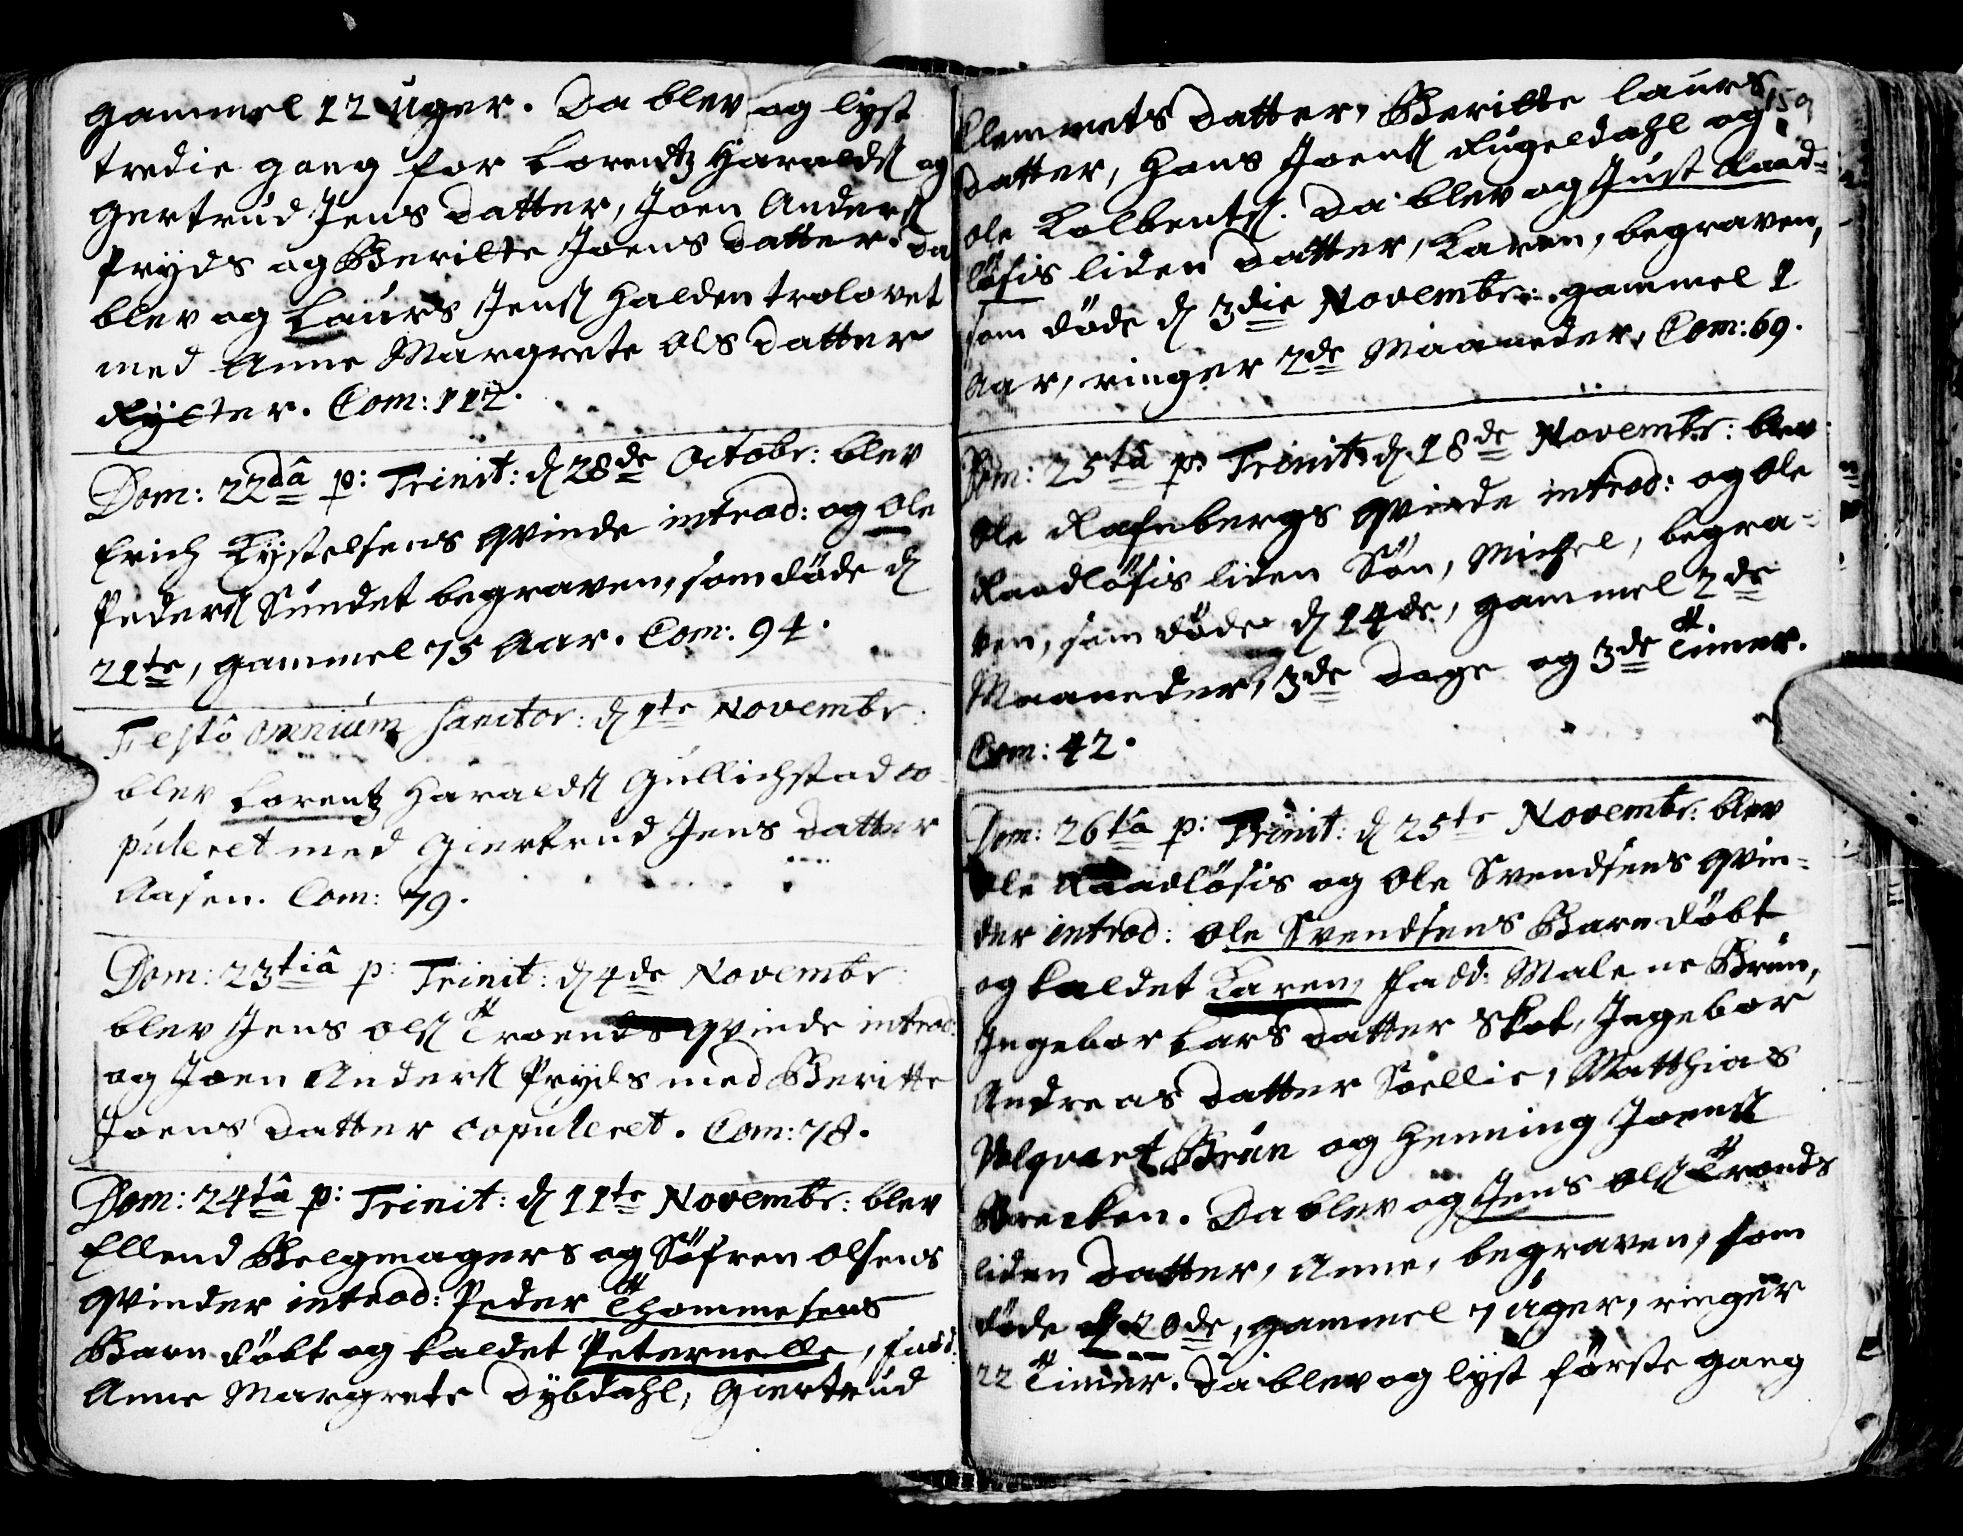 gammel 12 Uger. Da blev og lyst
tredie gang for Lorentz Haralds: og
Gertrud Jens datter, Joen Anders:
Pryds og Beritte Joens datter. Da
blev og Laurs Jens: Halden trolovet
med Anne Margrete Ols datter
Rÿtter. Com: 112.
Dom: 22dâ p: Trinit: d 28de Octobr: blev
Erich Kystelsens qvinde introd: og Ole
Peders: Sundet begraven, som døde d
21te, gammel 75 Aar. Com: 94.
Festô omnium sanctor: d 1te Novembr:
blev Lorentz Haralds: Gullichstad co-
puleret med Giertrud Jens datter
Aasen. Com: 79.
Dom: 23tiâ p: Trinit: d 4de Novembr:
blev Jens Ols: Troends qvinde introd:
og Joen Anders: Pryds med Beritte
Joens datter copuleret. Com: 78.
Dom: 24tâ p: Trinit: d 11te Novembr: blev
Ellend Belgmagers og Søfren Olsens
qvinder introd: Peder Thommesens
Barn døbt og kaldet Peternelle, fadd:
Anne Margrete Dybdahl, Giertrud
159
Klemmets datter, Beritte Laurs
datter, Hans Joens: Kugeldahl og
Ole Kolbents: Da blev og Just Raad-
løsis liden datter, Karen, begraven,
som døde d 3die Novembr: gammel 1
Aar, ringer 2de Maaneder, Com: 69.
Dom: 25tâ p: Trinit: d 18de Novembr: blev
Ole Rafnbergs qvinde introd: og Ole
Raadløsis liden Søn, Michel, begra-
ven, som døde d 14de, gammel 2de
Maaneder, 3de dage og 3de Timer.
Com: 42.
Dom: 26tâ p: Trinit: d 25te Novembr: blev
Ole Raadløsis og Ole Svendsens qvin-
der introd: Ole Svendsens Barn døbt
og kaldet Karen, fadd: Malene Brun,
Ingebor Lars datter Skot, Ingebor
Andreas datter Soellie, Matthias
Volqvart Brun og Henning Joens:
Brecken. Da blev og Jens Ols: Troends
liden datter, Anne, begraven, som
døde d 20de, gammel 7 uger, ringer
22 Timer. Da blev og lyst første gang